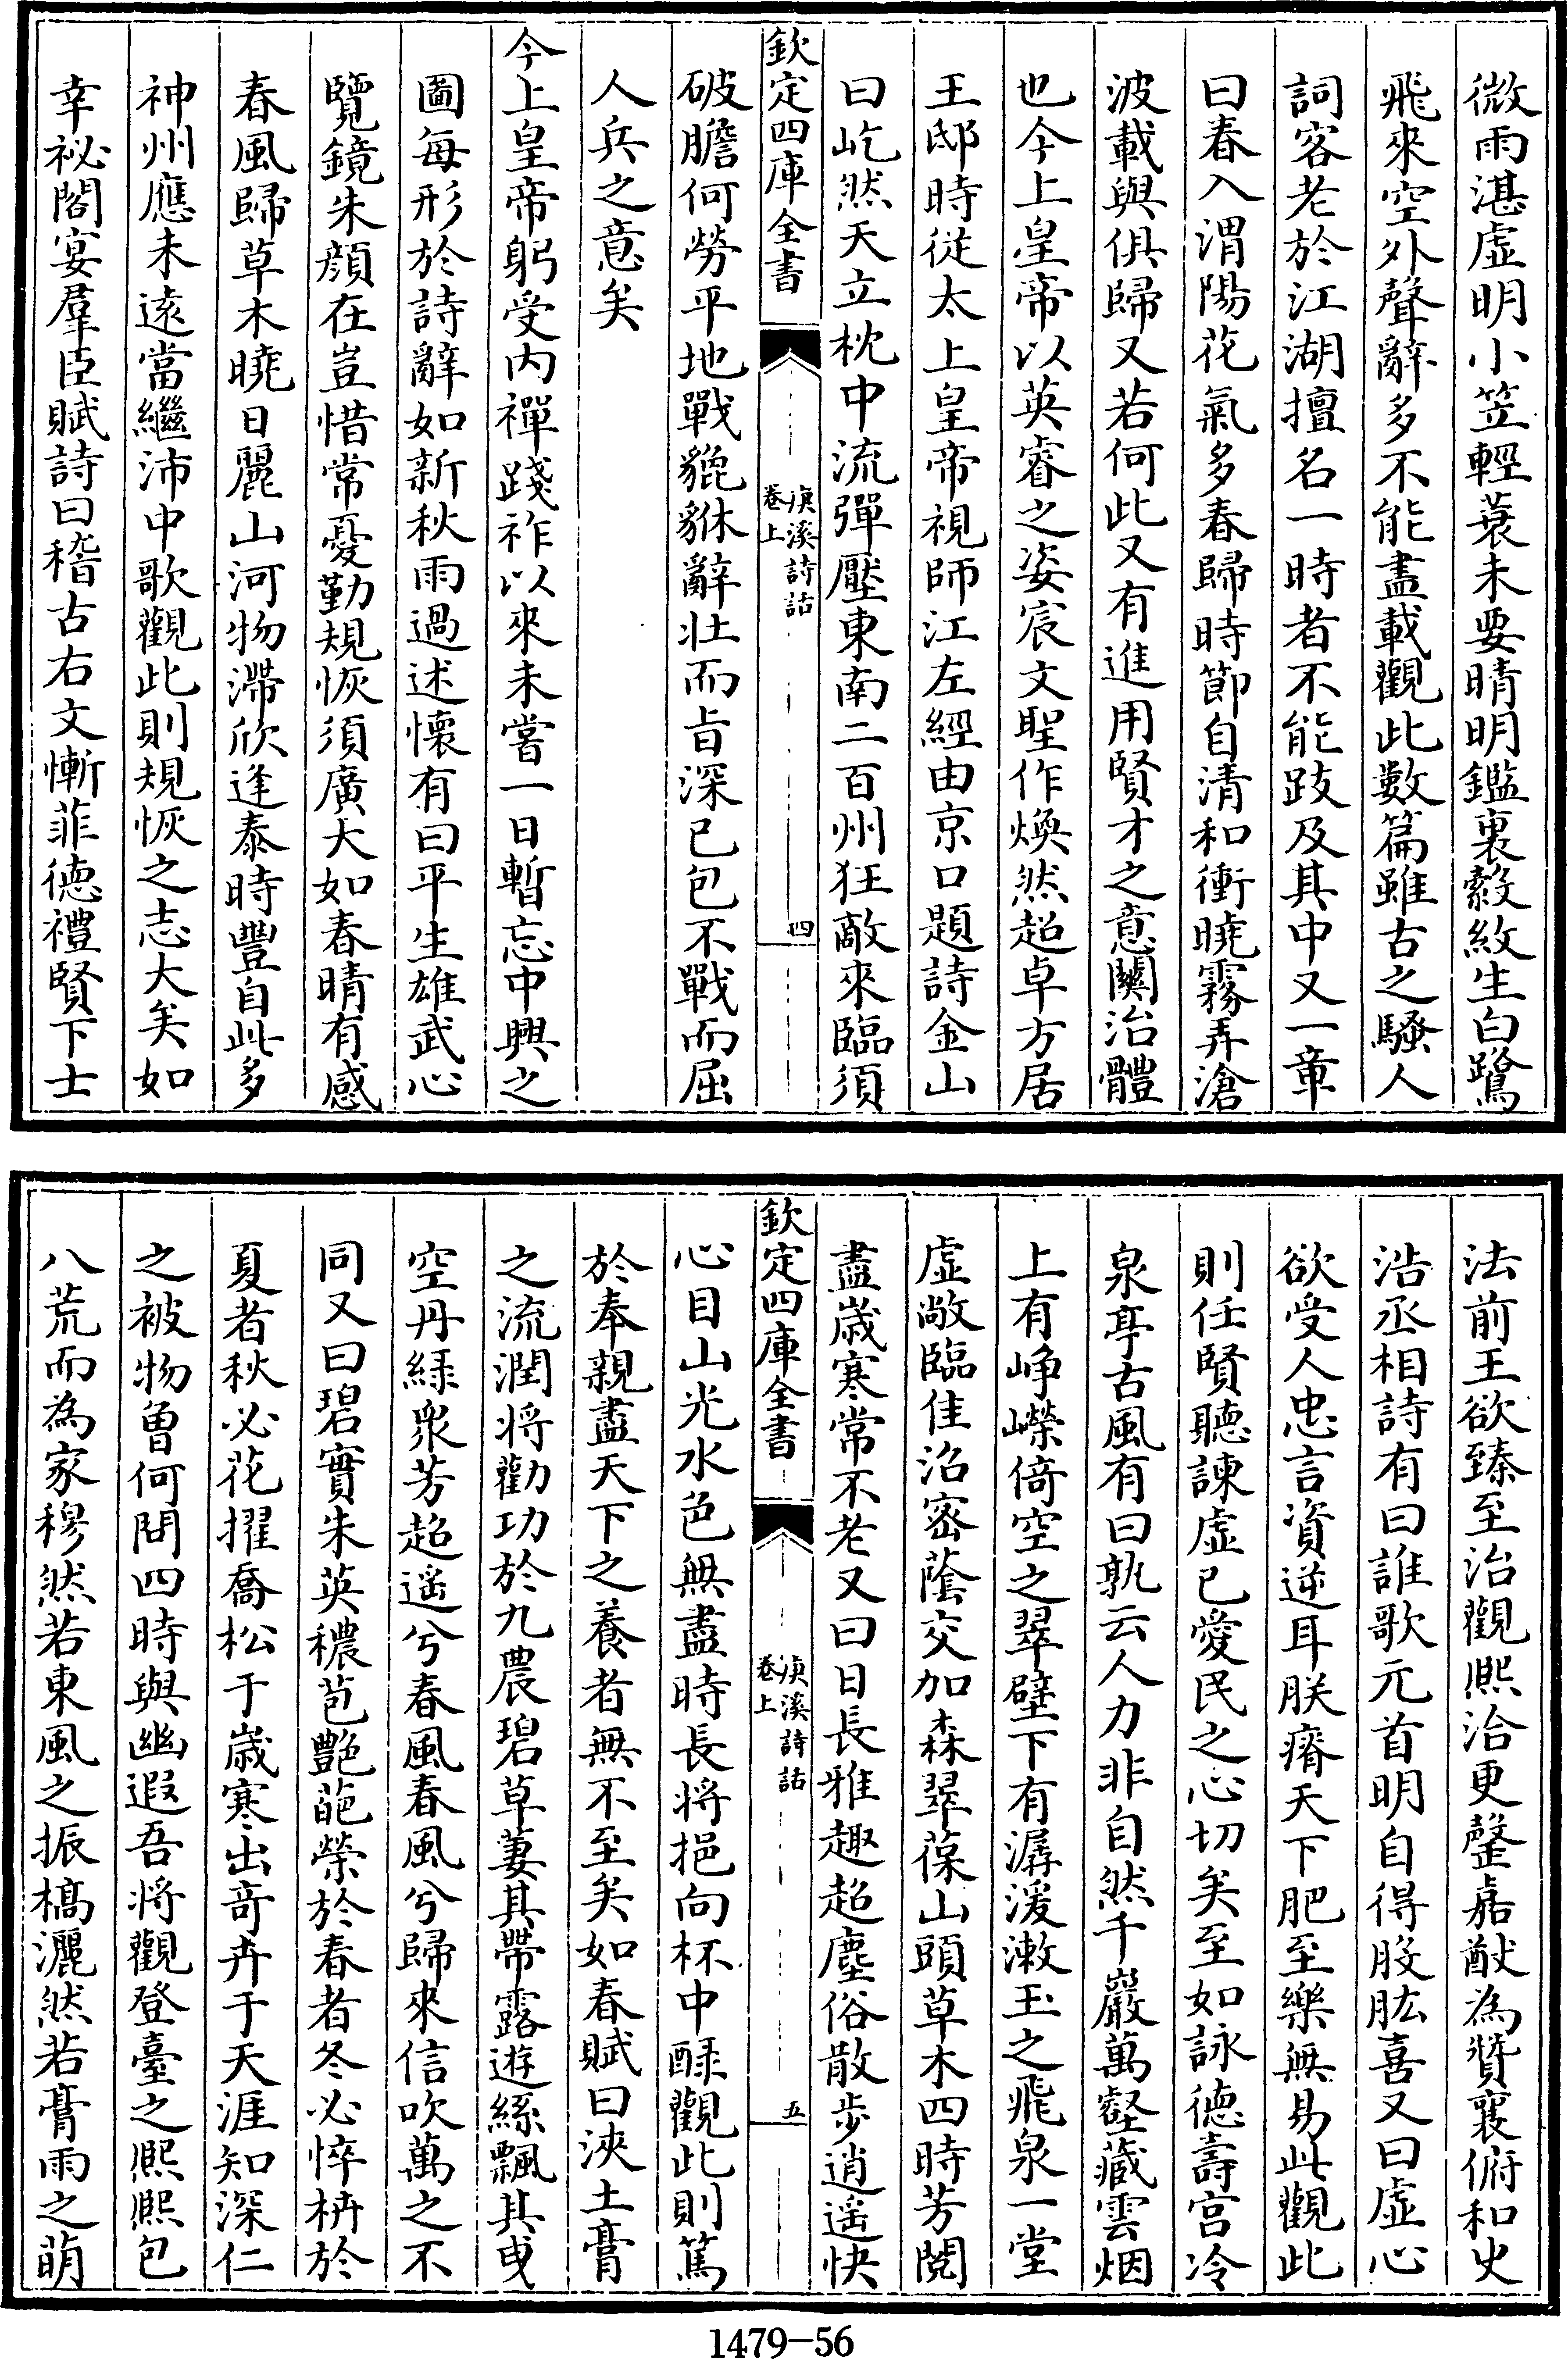 微雨湛虛明小笠輕蓑未要晴明鑑裏縠紋生白鷺
飛來空外聲辭多不能盡載觀此數篇雖古之騷人
詞客老於江湖擅名一時者不能跂及其中又一章
曰春入渭陽花氣多春歸時節自清和衝曉霧弄滄
波載與俱歸又若何此又有進用賢才之意關治體
也今上皇帝以英睿之姿宸文聖作煥然超卓方居
王邸時從太上皇帝視師江左經由京口題詩金山
曰屹然天立枕中流彈壓東南二百州狂敵來臨須
欽定四庫全書
庚溪詩話
卷上
四
破膽何勞平地戰貔貅辭壯而旨深已包不戰而屈
人兵之意矣
今上皇帝躬受内禪踐祚以來未嘗一日暫忘中興之
圖每形於詩辭如新秋雨過述懷有曰平生雄武心
覽鏡朱顔在豈惜常憂勤規恢須廣大如春晴有感
春風歸草木曉日麗山河物滯欣逢泰時豐自此多
神州應未遠當繼沛中歌觀此則規恢之志大矣如
幸祕閣宴羣臣賦詩曰稽古右文慚菲德禮賢下士
法前王欲臻至治觀熙洽更罄嘉猷為贊襄俯和史
浩丞相詩有曰誰歌元首明自得股肱喜又曰虛心
欲受人忠言資逆耳朕瘠天下肥至樂無易此觀此
則任賢聽諫虛已愛民之心切矣至如詠德壽宫冷
泉亭古風有曰孰云人力非自然千巖萬壑藏雲烟
上有崢嶸倚空之翠壁下有潺湲漱玉之飛泉一堂
虛敞臨佳沼密蔭交加森翠葆山頭草木四時芳閱
盡歲寒常不老又曰日長雅趣超塵俗散步逍遥快
欽定四庫全書
庚溪詩話
卷上
五
心目山光水色無盡時長將挹向杯中醁觀此則篤
於奉親盡天下之養者無不至矣如春賦曰浹土膏
之流潤將勸功於九農碧草萋其帶露遊絲飄其曳
空丹緑衆芳超遥兮春風春風兮歸來信吹萬之不
同又曰碧實朱英穠苞艷葩榮於春者冬必悴枿於
夏者秋必花擢喬松于歲寒出奇卉于天涯知深仁
之被物曾何間四時與幽遐吾將觀登臺之熙熙包
八荒而為家穆然若東風之振槁灑然若膏雨之萌
1479-56